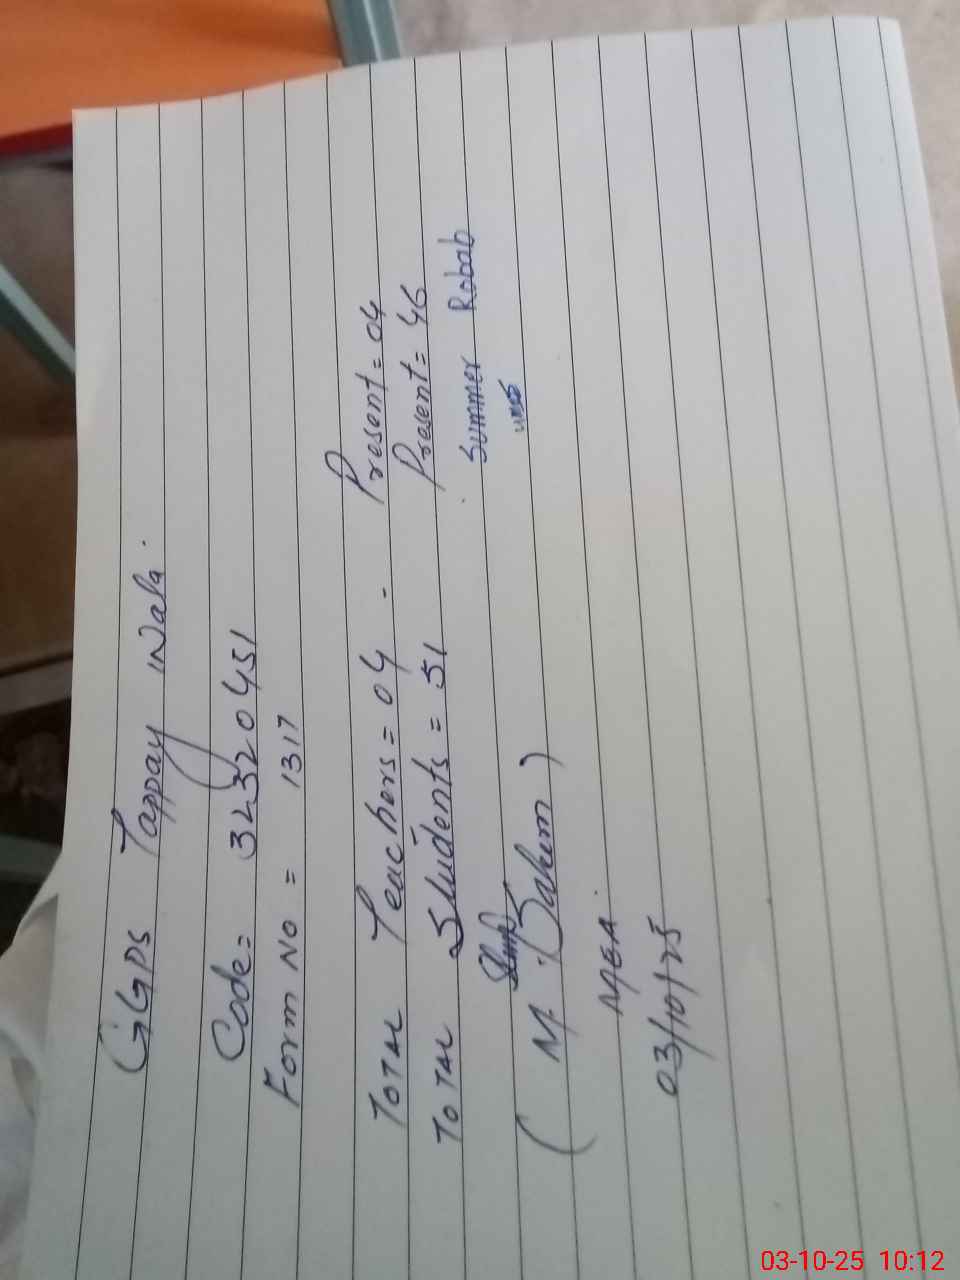 GGPS Tappay Wala.
Code = 32320451
Form No = 1317
Total Teachers = 04 - Present = 04
Total Students = 51 Present = 46
Summer Robab
( M. )
MEA
03/10/25
03-10-25 10:12